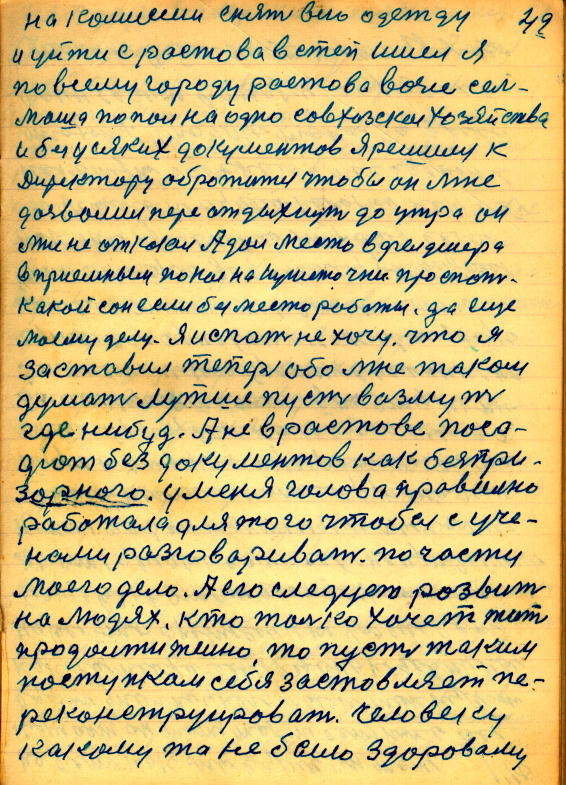 на комиссии снят вию одежду 49
и уйти с растова в степ ишел я
по всему городу растова воче сел-
маша попал на одно совхозская хозяйства
и без усяких документов я решил к
директору обротится чтобы он мне
дозволил переотдыхнут до утра он
мне не отказал А дал место в дрендшера
в приемным покои на кушеточки проспат.
какой сон если без место работы. да еще
моему делу. Я и спат не хочу, что я
заставил тепер обо мне таком
думат лутше пуст вазмут
где нибуд. А не в растове поса-
дют без документов как безпри-
зорного. у меня голова правилно
работала для того чтобы с уче-
ными разговариват. по части
моего дело. А его следует розвит
на людях. кто толко хочет жит
продолжително, то пуст таким
поступкам себя застовляет пе-
реконструироват. человеку
какому та не было здоровому